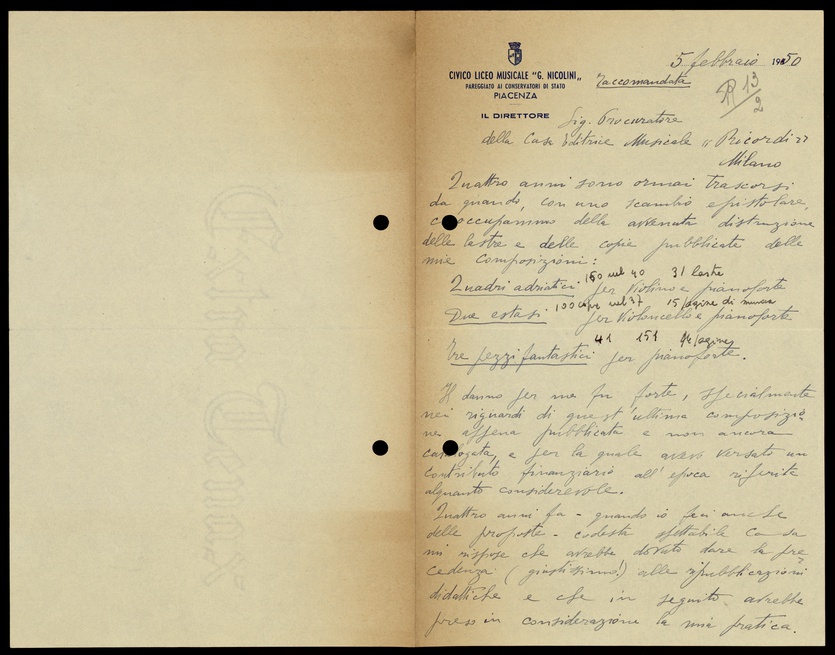 5 febbraio 1950
CIVICO LICEO MUSICALE "G. NICOLINI"
PAREGGIATO AI CONSERVATORI DI STATO
PIACENZA
Raccomandata
R 13/2
IL DIRETTORE
Sig. Procuratore
della Casa Editrice Musicale "Ricordi"
Milano
Quattro anni sono ormai trascorsi
da quando, con uno scambio epistolare,
ci occupammo della avvenuta distruzione
delle lastre e delle copie pubblicate delle
mie composizioni:
150 nel 40 31 lastre
Quadri adriatici per Violino e pianoforte
100 copie nel 37 15 pagine di musica
Due estasi per Violoncello e pianoforte
41 151 pagine
Tre pezzi fantastici per pianoforte.
Il danno per me fu forte, specialmente
nei riguardi di quest'ultima composizio-
ne appena pubblicata e non ancora
catalogata, e per la quale avevo versato un
contributo finanziario all'epoca riferita
alquanto considerevole.
Quattro anni fa - quando io feci anche
delle proposte - codesta spettabile Casa
mi rispose che avrebbe dovuto dare la pre-
cedenza (giustissimo!) alle ripubblicazioni
didattiche e che in seguito avrebbe
preso in considerazione la mia pratica.